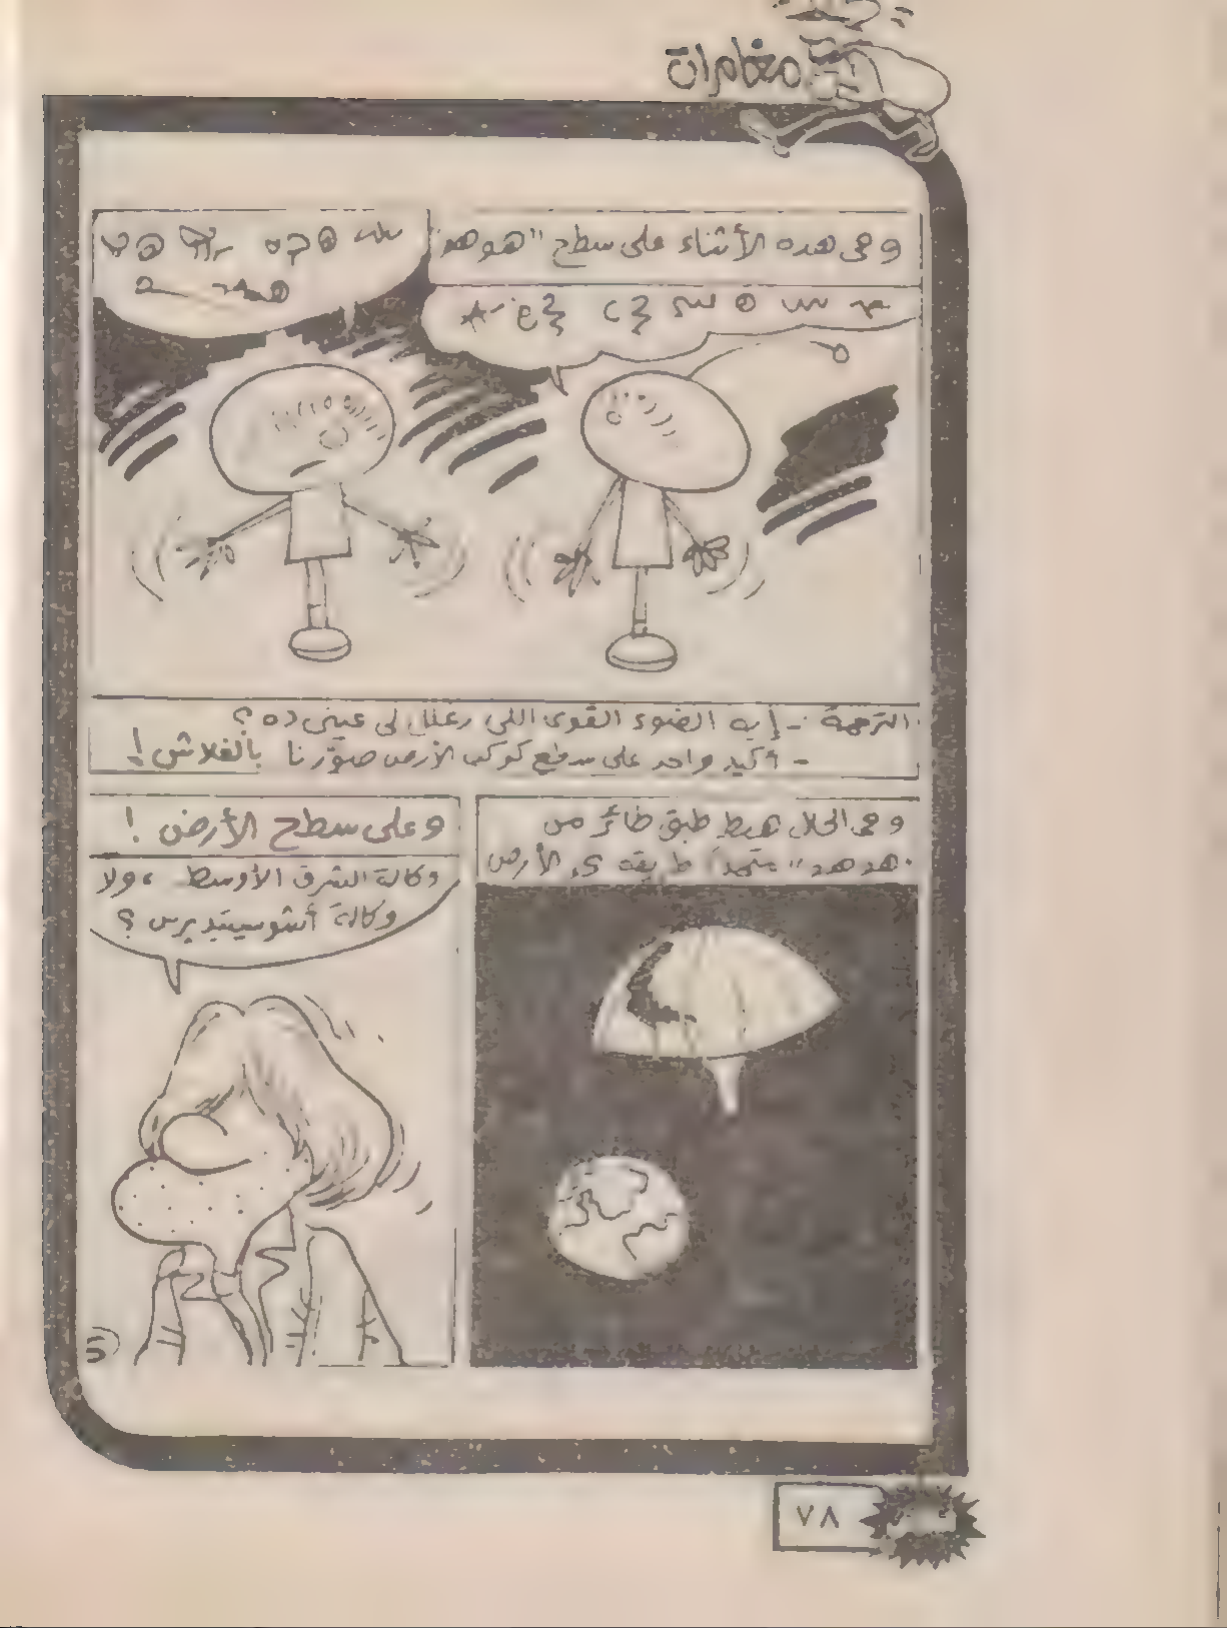 مغامرات
وفى هذه الأثناء على سطح "هو هو"
الترجمة :- إيه الضوء القوى اللى زغلل لى عينى ده ؟
- أكيد واحد على سطح كوكب الأرض صوّرنا بالفلاش !
وفى الحال هبط طبق طائر من
"هدهد" متخذاً طريقه إلى الأرض
وعلى سطح الأرض !
وكالة الشرق الأوسط ، ولا
وكالة أسوسيتيد برس ؟
٧٨